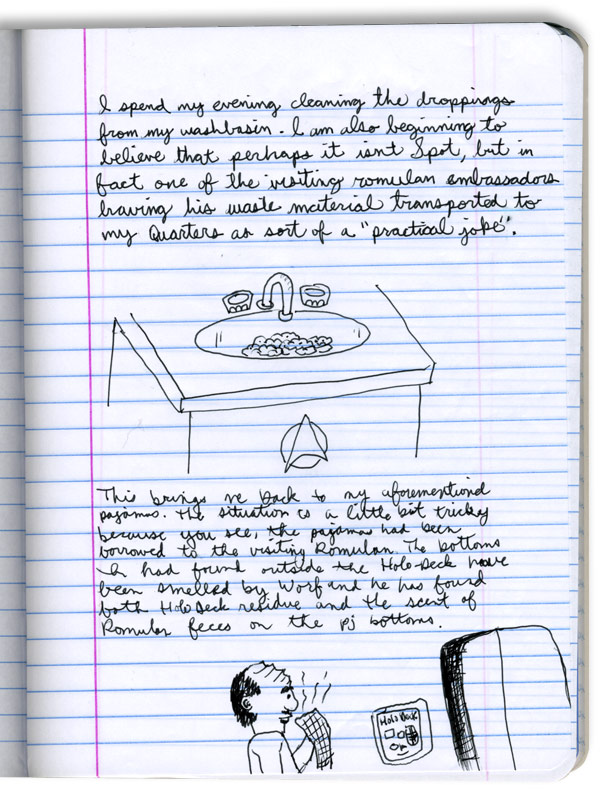 I spend my evening cleaning the droppings
from my washbasin. I am also beginning to
believe that perhaps it isnt Spot, but in
fact one of the visiting romulan embassadors
having his waste material transported to
my Quarters as sort of a "practical joke".
This brings me back to my aforementioned
pajamas. The situation is a little bit tricky
because you see, the pajamas had been
borrowed to the visiting Romulan. The bottoms
I had found outside the Holo-Deck have
been smelled by Worf and he has found
both HoloDeck residue and the scent of
Romulan feces on the pj bottoms.
Holo Deck